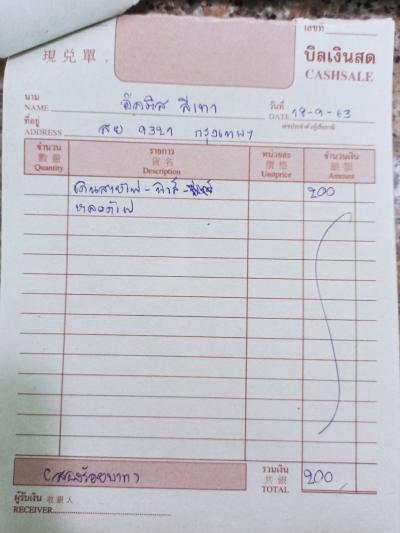 เลขที่
現兑單 บิลเงินสด
CASHSALE
นาม
NAME สีเทา วันที่
DATE 18-9-63
ที่อยู่ เลขประจำตัวผู้เสียภาษี
ADDRESS กรุงเทพฯ
จำนวน รายการ หน่วยละ จำนวนเงิน
數量 貨名 價格 銀額
Quantity Description Unitprice Amount
เดินสายไฟ 200
หลอดไฟ
(สองร้อยบาท) รวมเงิน 200
共銀
TOTAL
ผู้รับเงิน 收銀人
RECEIVER